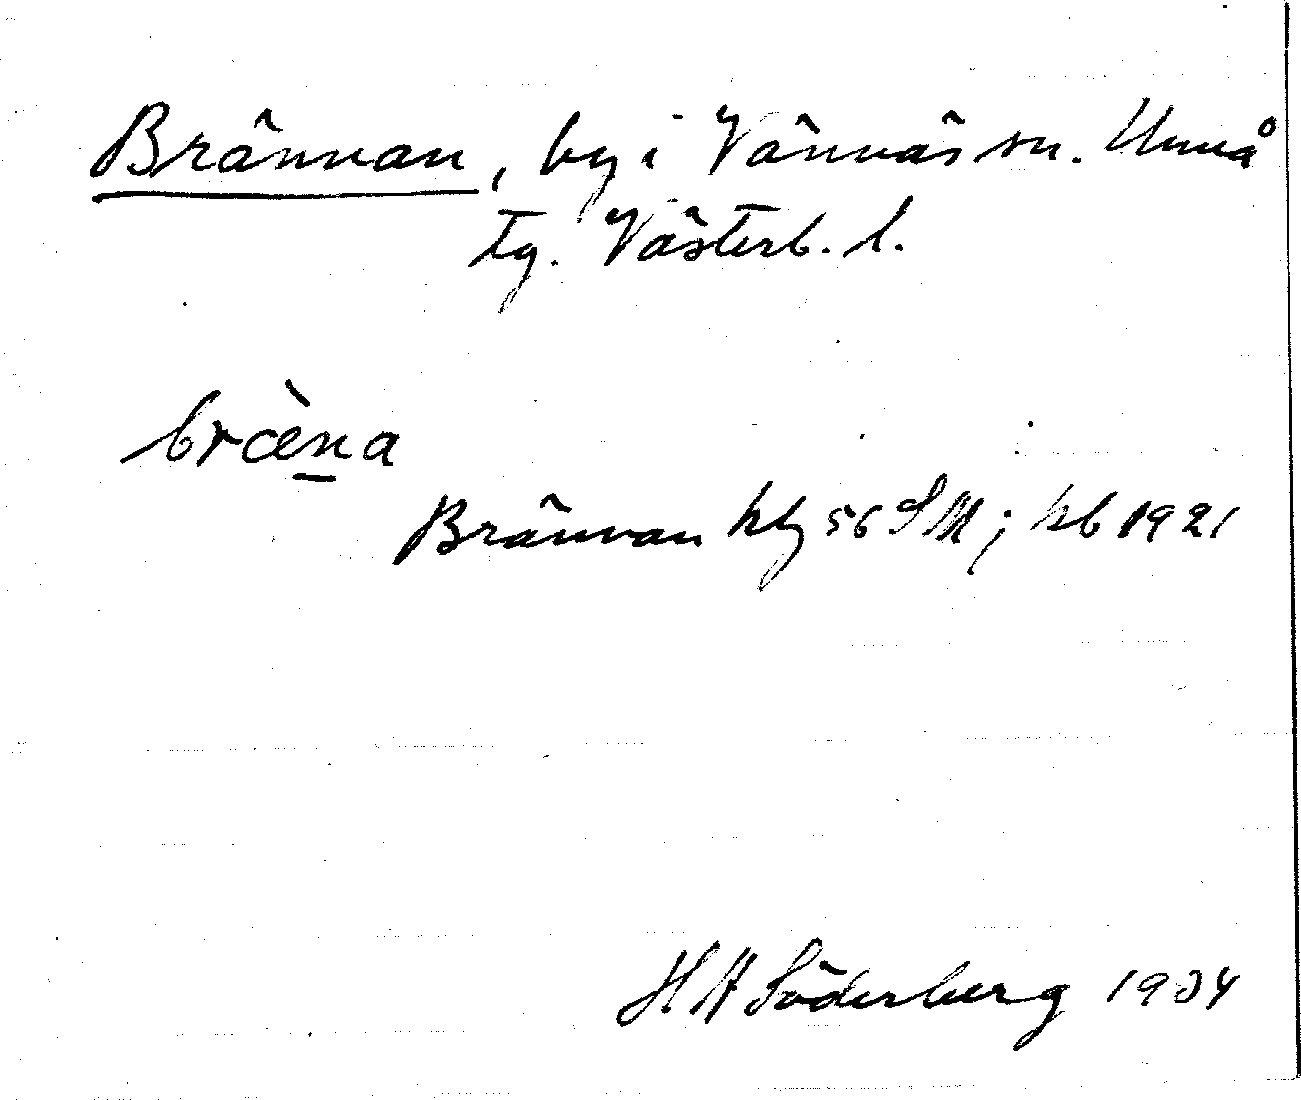 Brännan, by i Vännäs sn. Umeå
tg. Västerb. l.
bræ̀n̲a
Brännan kbl 56 SM; kb 1921
H A Söderberg 1934